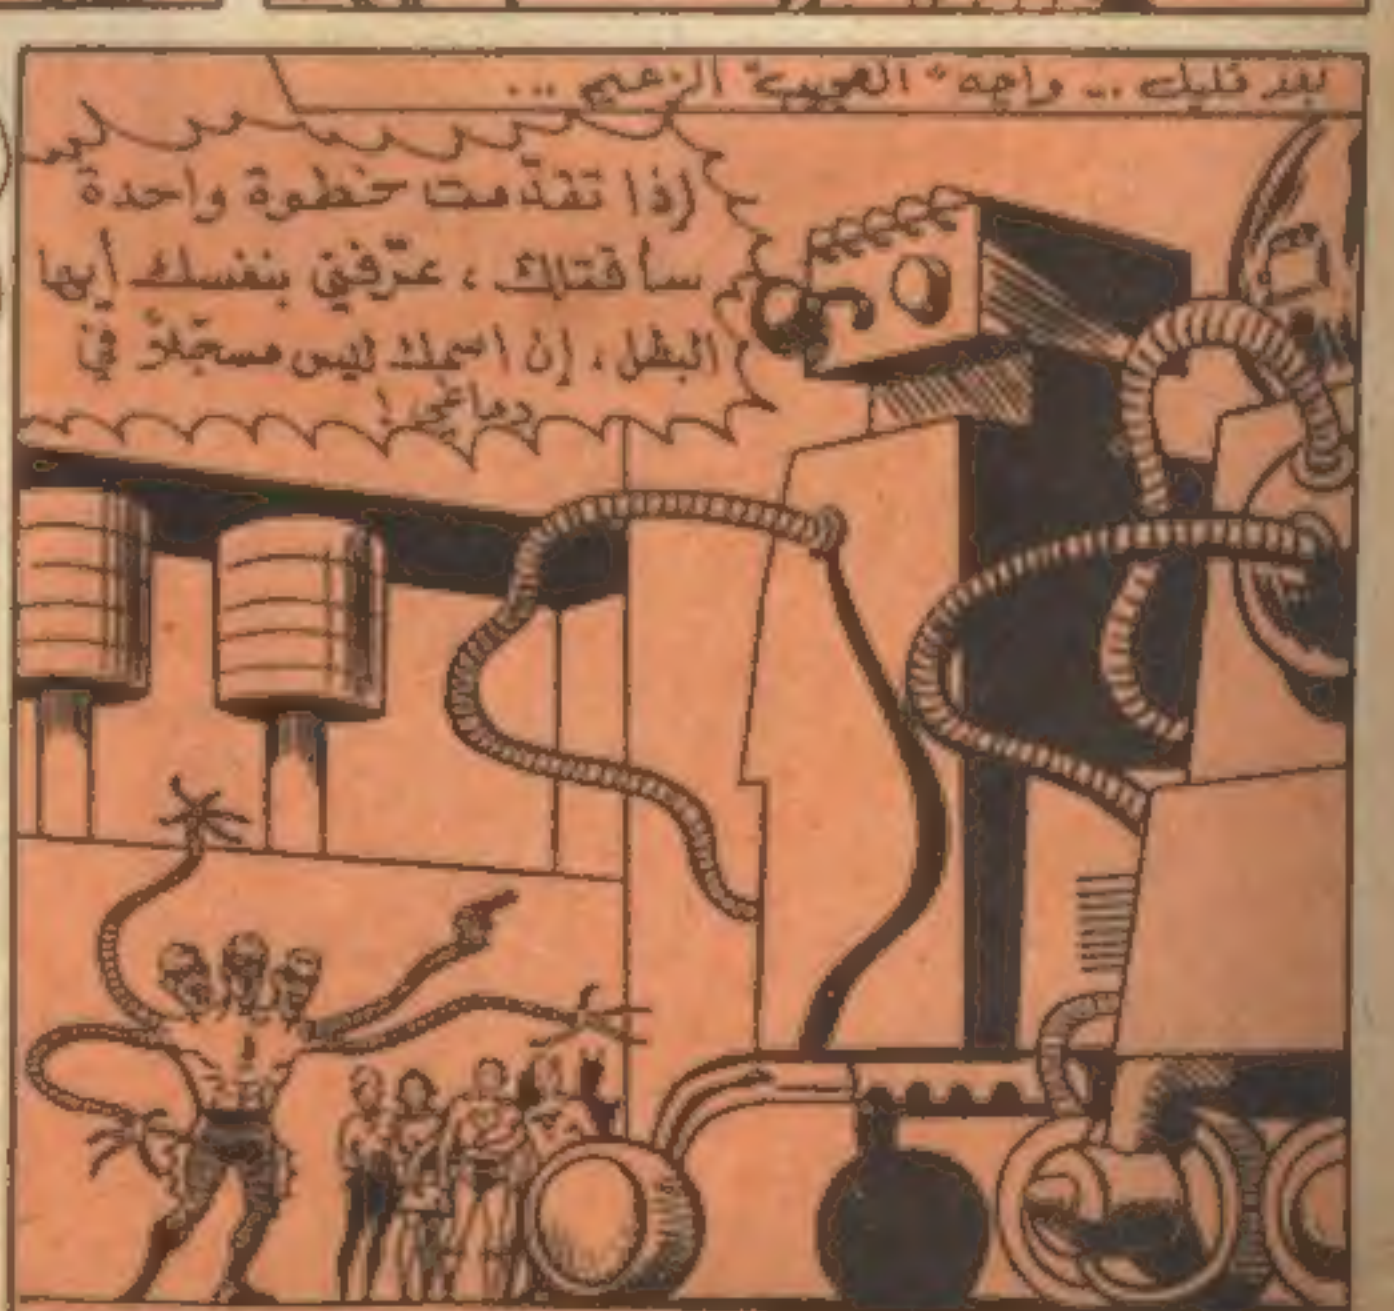 بعد قليل ... واجه "العجيب" الزعيم ...
إذا تقدّمت خطوة واحدة
سأقتلك ، عرّفني بنفسك أيها
البطل . إن اسمك ليس مسجّلاً في
دماغي !